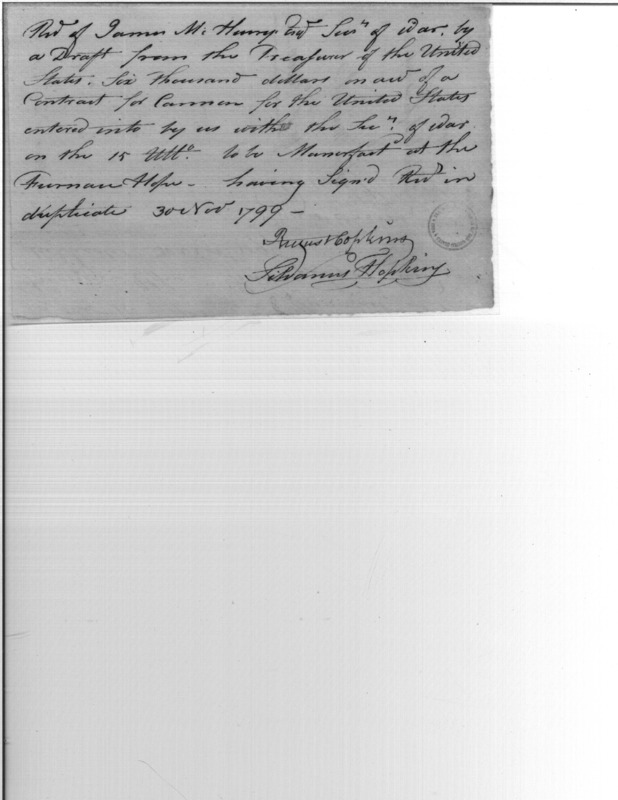 Recd of James Mc Henry Esqr Secy of War. by
a Draft from the Treasurer of the United
States. Six thousand dollars on acct of a
Contract for Cannon for the United States
entered into by us with the Secy of War.
on the 15 Ulto. to be Manufactd at the
Furnace Hope - having Sign'd Rects in
duplicate 30 Nov 1799 -
Rufus Hopkins
Silvanus Hopkins